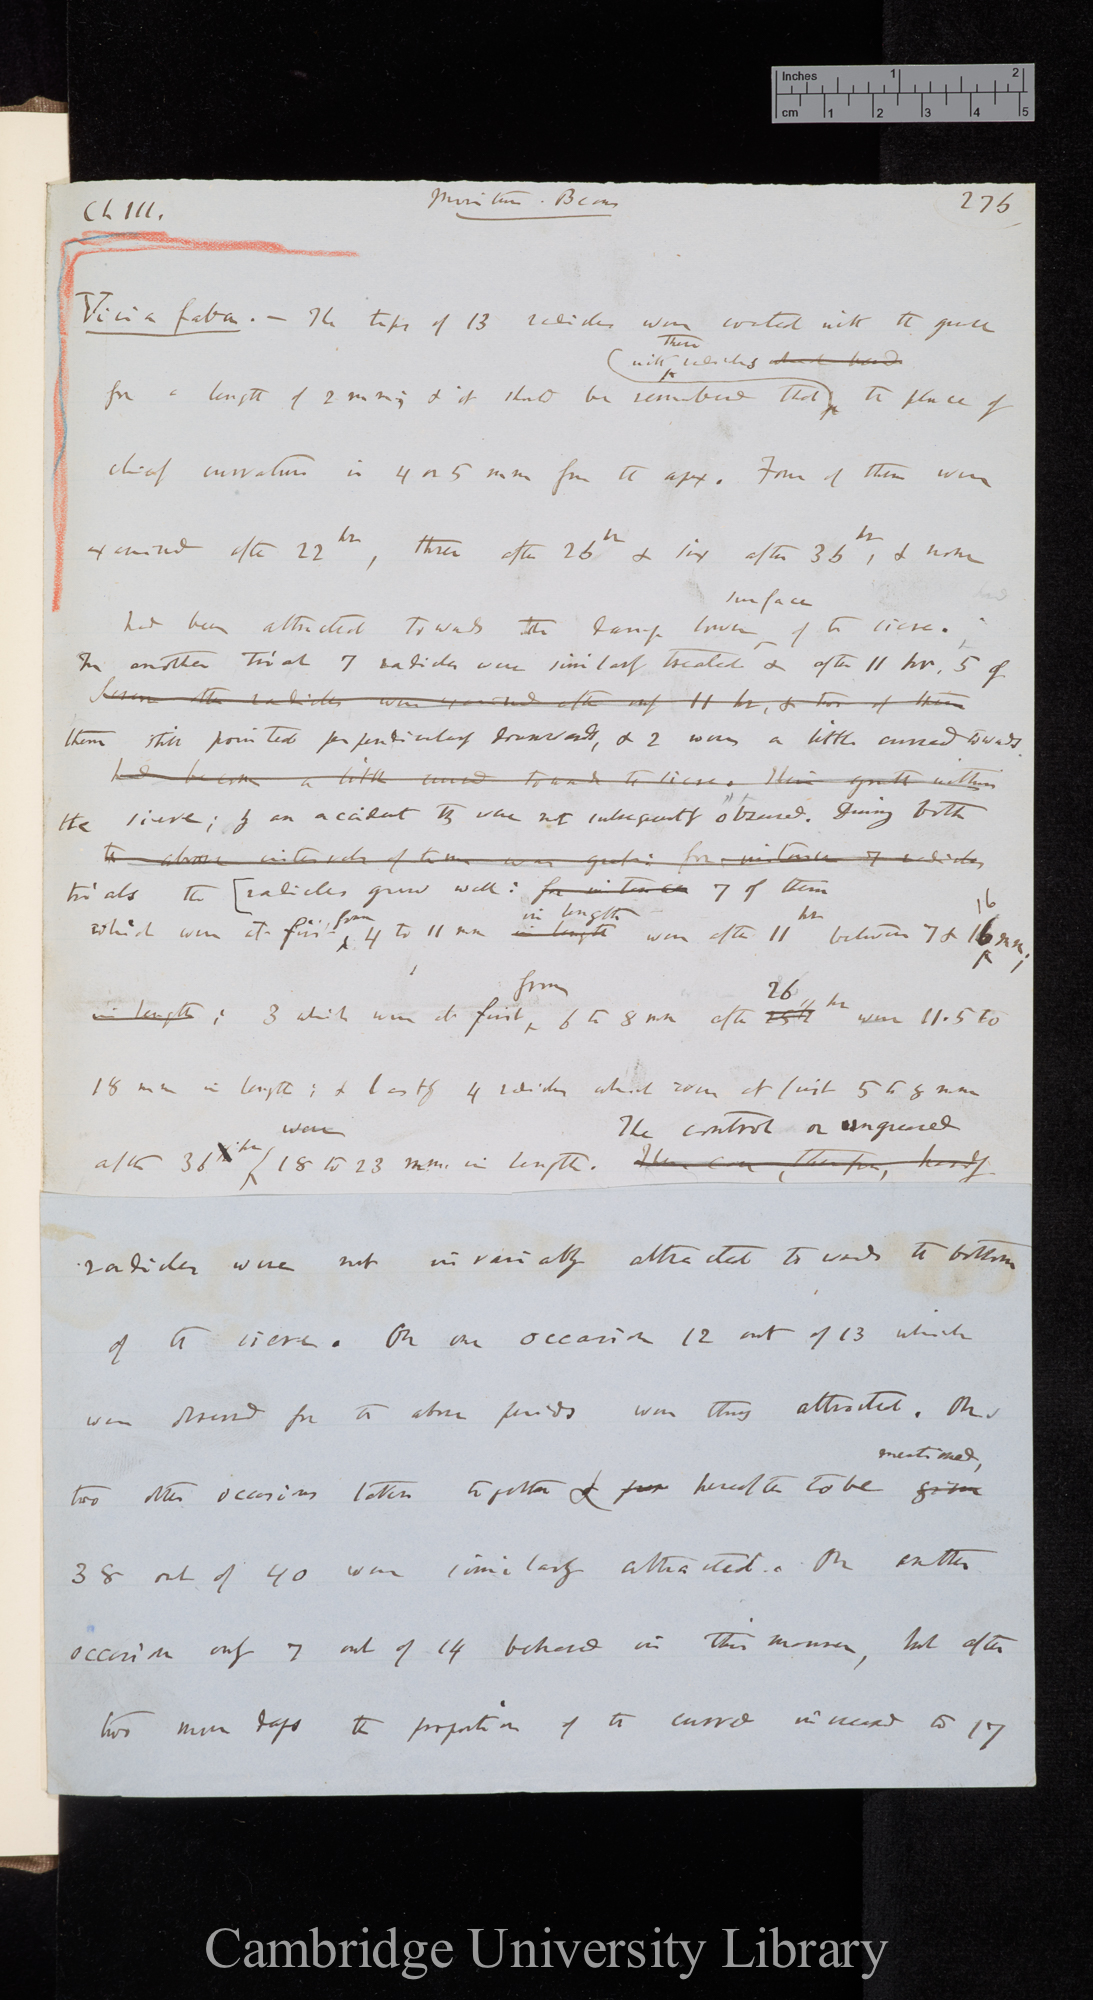 Inches 1 2
cm 1 2 3 4 5
Ch III.
Moisture. Beans
276
Vicia faba. — The tips of 13 radicles were coated with the grease
(with these radicles
for a length of 2 mm; & it should be remembered that the place of
chief curvature is 4 or 5 mm from the apex. Four of them were
examined after 22 hr, three after 26 hr & six after 36 hr, & none
surface
had been attracted towards the damp lower of the sieve.
In another trial 7 radicles were similarly treated & after 11 hr. 5 of
Seven other radicles were examined after only 11 hr, & two of them
them still pointed perpendicularly downwards, & 2 were a little curved towards
had become a little curved towards the sieve. Their growth within
the sieve; by an accident they were not subsequently observed. During both
the above intervals of time was great: for instance 7 radicles
trials the [radicles grew well: for instance 7 of them
from in length 16
which were at first 4 to 11 mm in length were after 11 hr between 7 & 16 mm;
from 26
in length; 3 which were at first 6 to 8 mm after hr were 11.5 to
18 mm in length; & lastly 4 radicles which were at first 5 to 8 mm
were The control or ungreased
after 36 hr 18 to 23 mm. in length. therefore, hardly
radicles were not invariably attracted towards the bottom
of the sieve. On one occasion 12 out of 13 which
were observed for the above periods were thus attracted. On
mentioned,
two other occasions taken together & hereafter to be given
38 out of 40 were similarly attracted. On another
occasion only 7 out of 14 behaved in this manner, but after
two more days the proportion of the curved increased to 17
Cambridge University Library